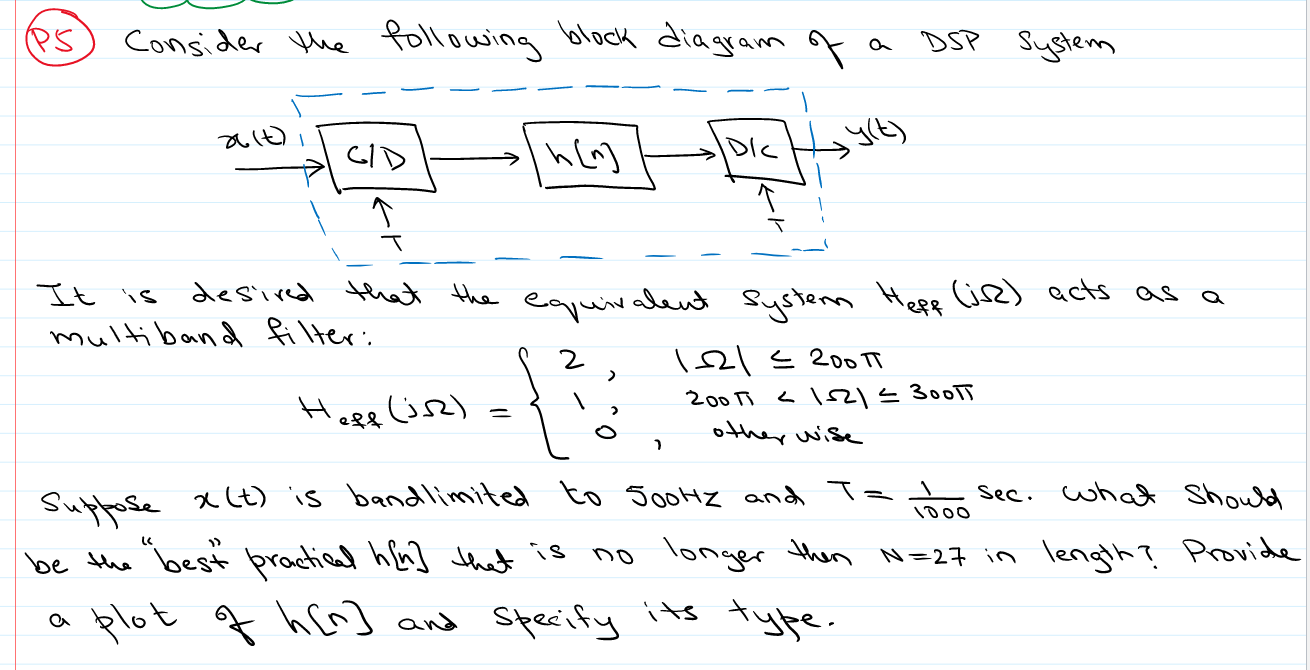 P5 Consider the following block diagram of a DSP System
x(t) C/D h[n] D/C y(t)
T T
It is desired that the equivalent system Heff (jΩ) acts as a
multiband filter:
2 , |Ω| ≤ 200π
Heff (jΩ) = { 1 , 200π < |Ω| ≤ 300π
0 , otherwise
Suppose x(t) is bandlimited to 500HZ and T = 1/1000 sec. What should
be the "best" practical h[n] that is no longer then N=27 in length? Provide
a plot of h[n] and specify its type.